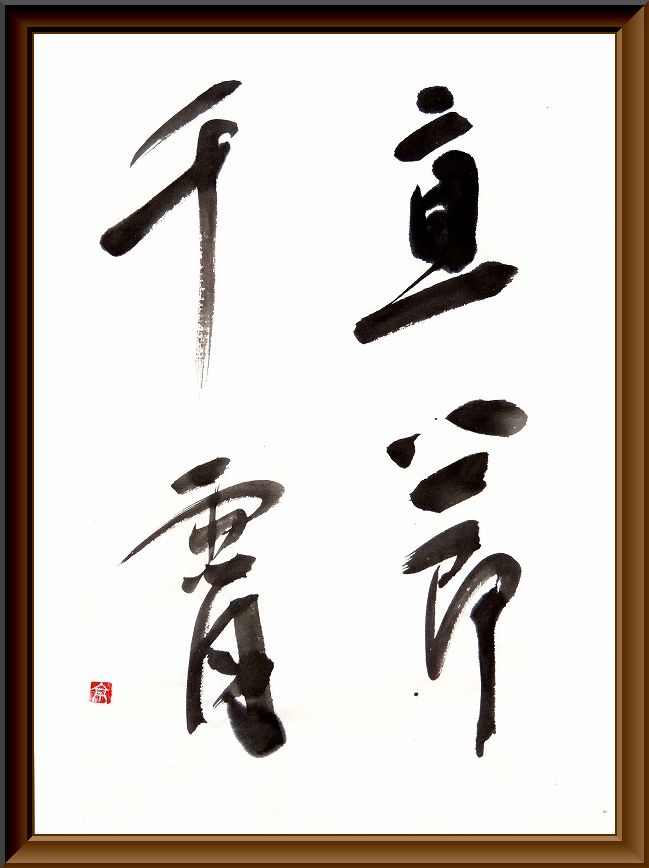 直節
干霄